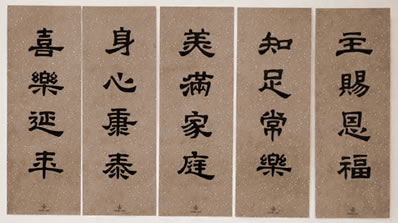 主賜恩福
知足常樂
美滿家庭
身心康泰
喜樂延年